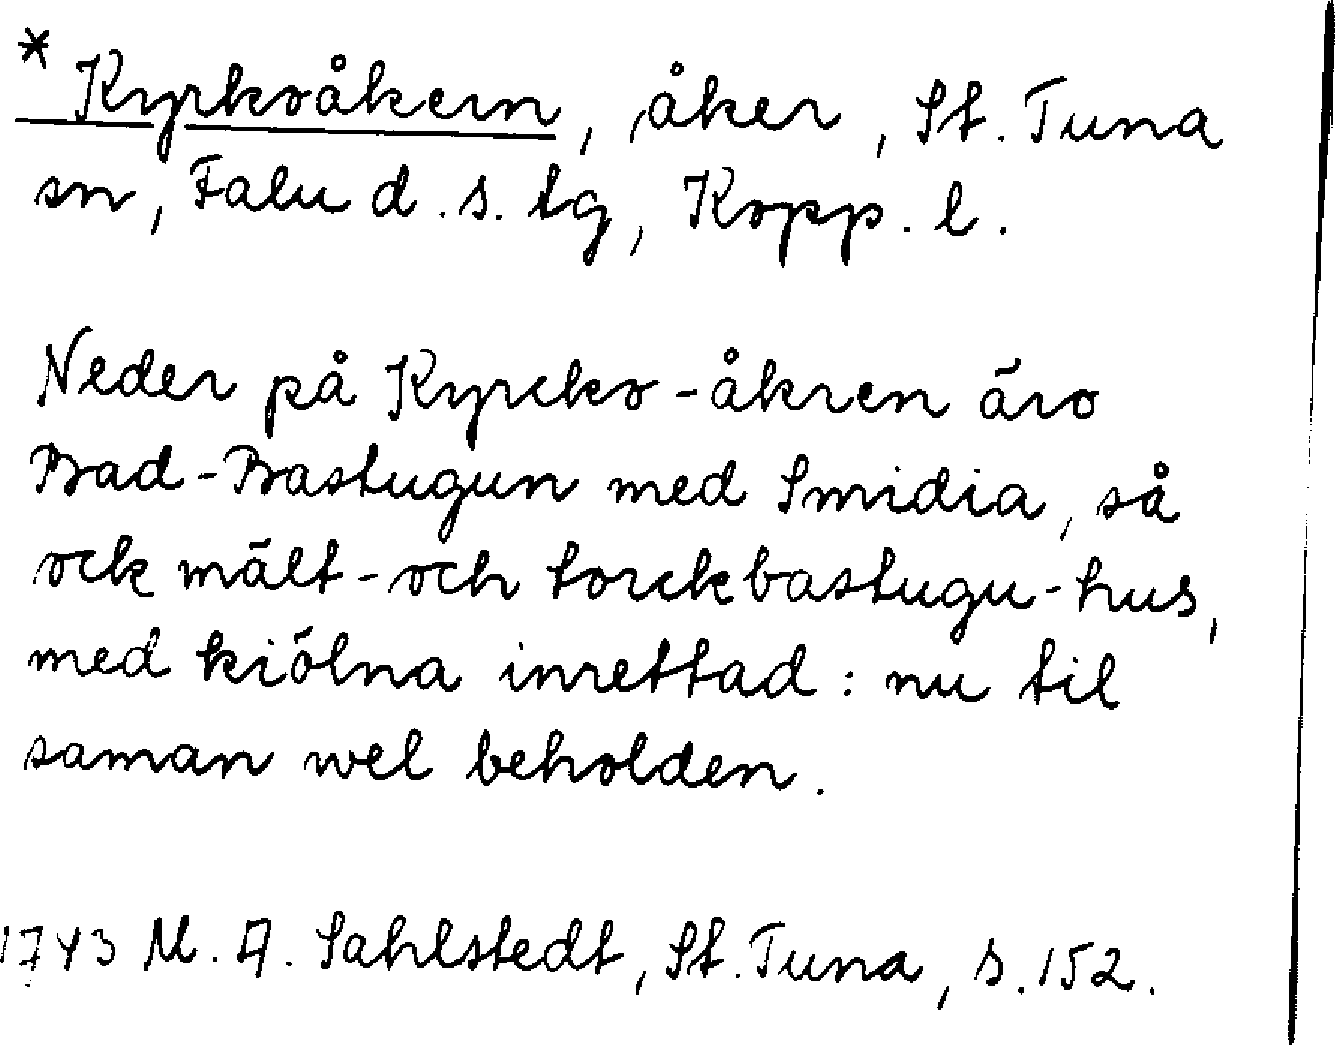 * Kyrkoåkern, åker, St. Tuna
sn, Falu d.s. lg, Kopp. l.
Neder på Kyrcko-åkren äro
Bad-Bastugun med Smidia, så
ock mält-och torckbastugu-hus,
med kiölna inrettad: nu til
saman wel beholden.
1743 M. A. Sahlstedt, St. Tuna, s. 152.